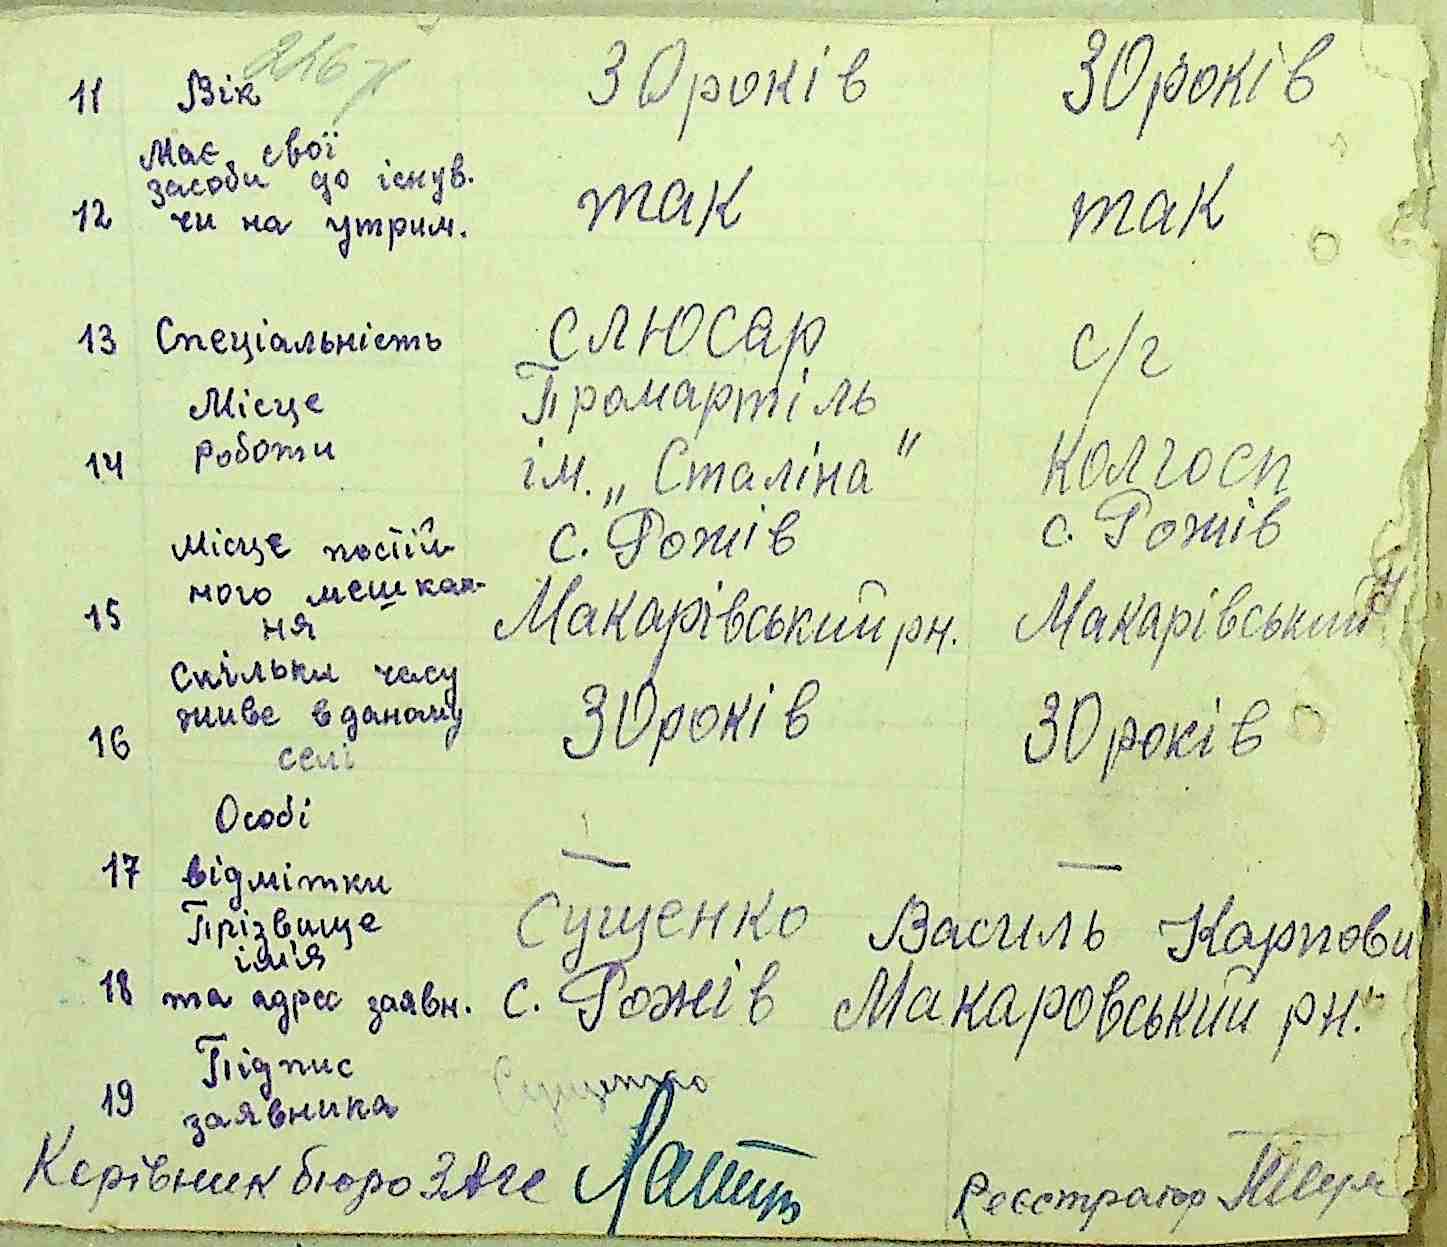 11 Вік 30 років 30 років
Має свої
засоби до існув.
12 чи на утрим. так так
13 Спеціальність слюсар с/г
Місце Промартіль
14 роботи ім. „Сталіна" колгосп
Місце постій- с. Рожів с. Рожів
ного мешкан-
15 ня Макарівський рн. Макарівський
Скільки часу
живе в даному 30 років 30 років
16 селі
Особі
17 відмітки — —
Прізвище Сущенко Василь Карпови
ім'я
18 та адрес заявн. с. Рожів Макаровський рн.
Підпис Сущенко
19 заявника
Керівник бюро ЗАГС Реєстратор